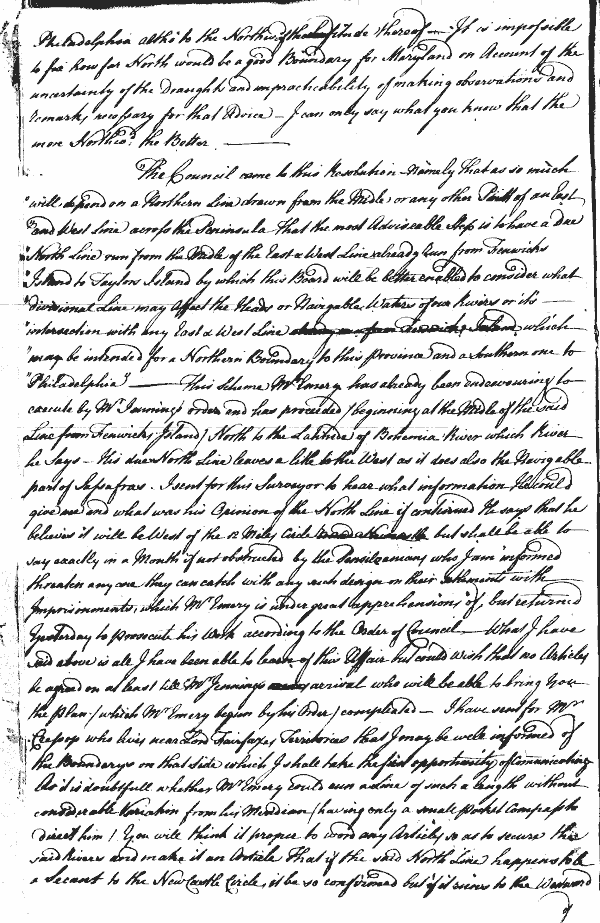 Philadelphia altho' to the Northw.d of the Latitude thereof — It is impossible
to fix how far North would be a good Boundary for Maryland on Account of the
uncertainty of the Draughts and impracticability of making observations and
remarks necessary for that Advice — I can only say what you know that the
more Northw.d the Better. ———
"The Council came to this Resolution namely That as so much
"will depend on a Northern Line drawn from the Midle or any other Point of an East
"and West Line across the Peninsula That the most Adviseable Step is to have a Due
"North Line run from the Midle of the East & West Line already Run from Fenwicks
"Island to Taylors Island by which this Board will be better enabled to consider what
"divisional Line may Affect the Heads or Navigable Waters of our Rivers or its —
"intersection with any East & West Line already run from Fenwicks Island, which
"may be intended for a Northern Boundary to this Province and a Southern one to
"Philadelphia" —— This Scheme Mr. Emery has already been endeavouring to
execute by Mr. Jennings order and has proceeded (beginning at the Midle of the said
Line from Fenwicks Island) North to the Latitude of Bohemia River which River
he says — His due North Line leaves a litle to the West as it does also the Navigable
part of Sasafras. I sent for this Surveyor to hear what information He could
give me and what was his Opinion of the North Line if continued He says that he
believes it will be West of the 12 Miles Circle but shall be able to
say exactly in a Month if not obstructed by the Pensilvanians who I am informed
threaten any one they can catch with any such design on their setlements with
Imprisonments, which Mr. Emery is under great apprehensions of, but returned
Yesterday to prosecute his Work according to the Order of Council — What I have
said above is all I have been able to learn of this Affair but could wish that no Articles
be agreed on at least till Mr. Jennings arrival who will be able to bring you
the plan (which Mr. Emery begun by his Order) compleated — I have sent for Mr.
Cresap who lives near Lord Fairfaxes Territories that I may be well informed of
the Boundarys on that side which I shall take the first opportunity of comunicating
As it is doubtfull whether Mr. Emery could run a Line of such a length without
considerable Variation from his Meridian (having only a small pocket Compass to
direct him) You will think it proper to word any Articles so as to secure the
said Rivers and make it an Article That if the said North Line happens to be
a Secant to the New Castle Circle, it be so confirmed but if it runs to the Westward
of